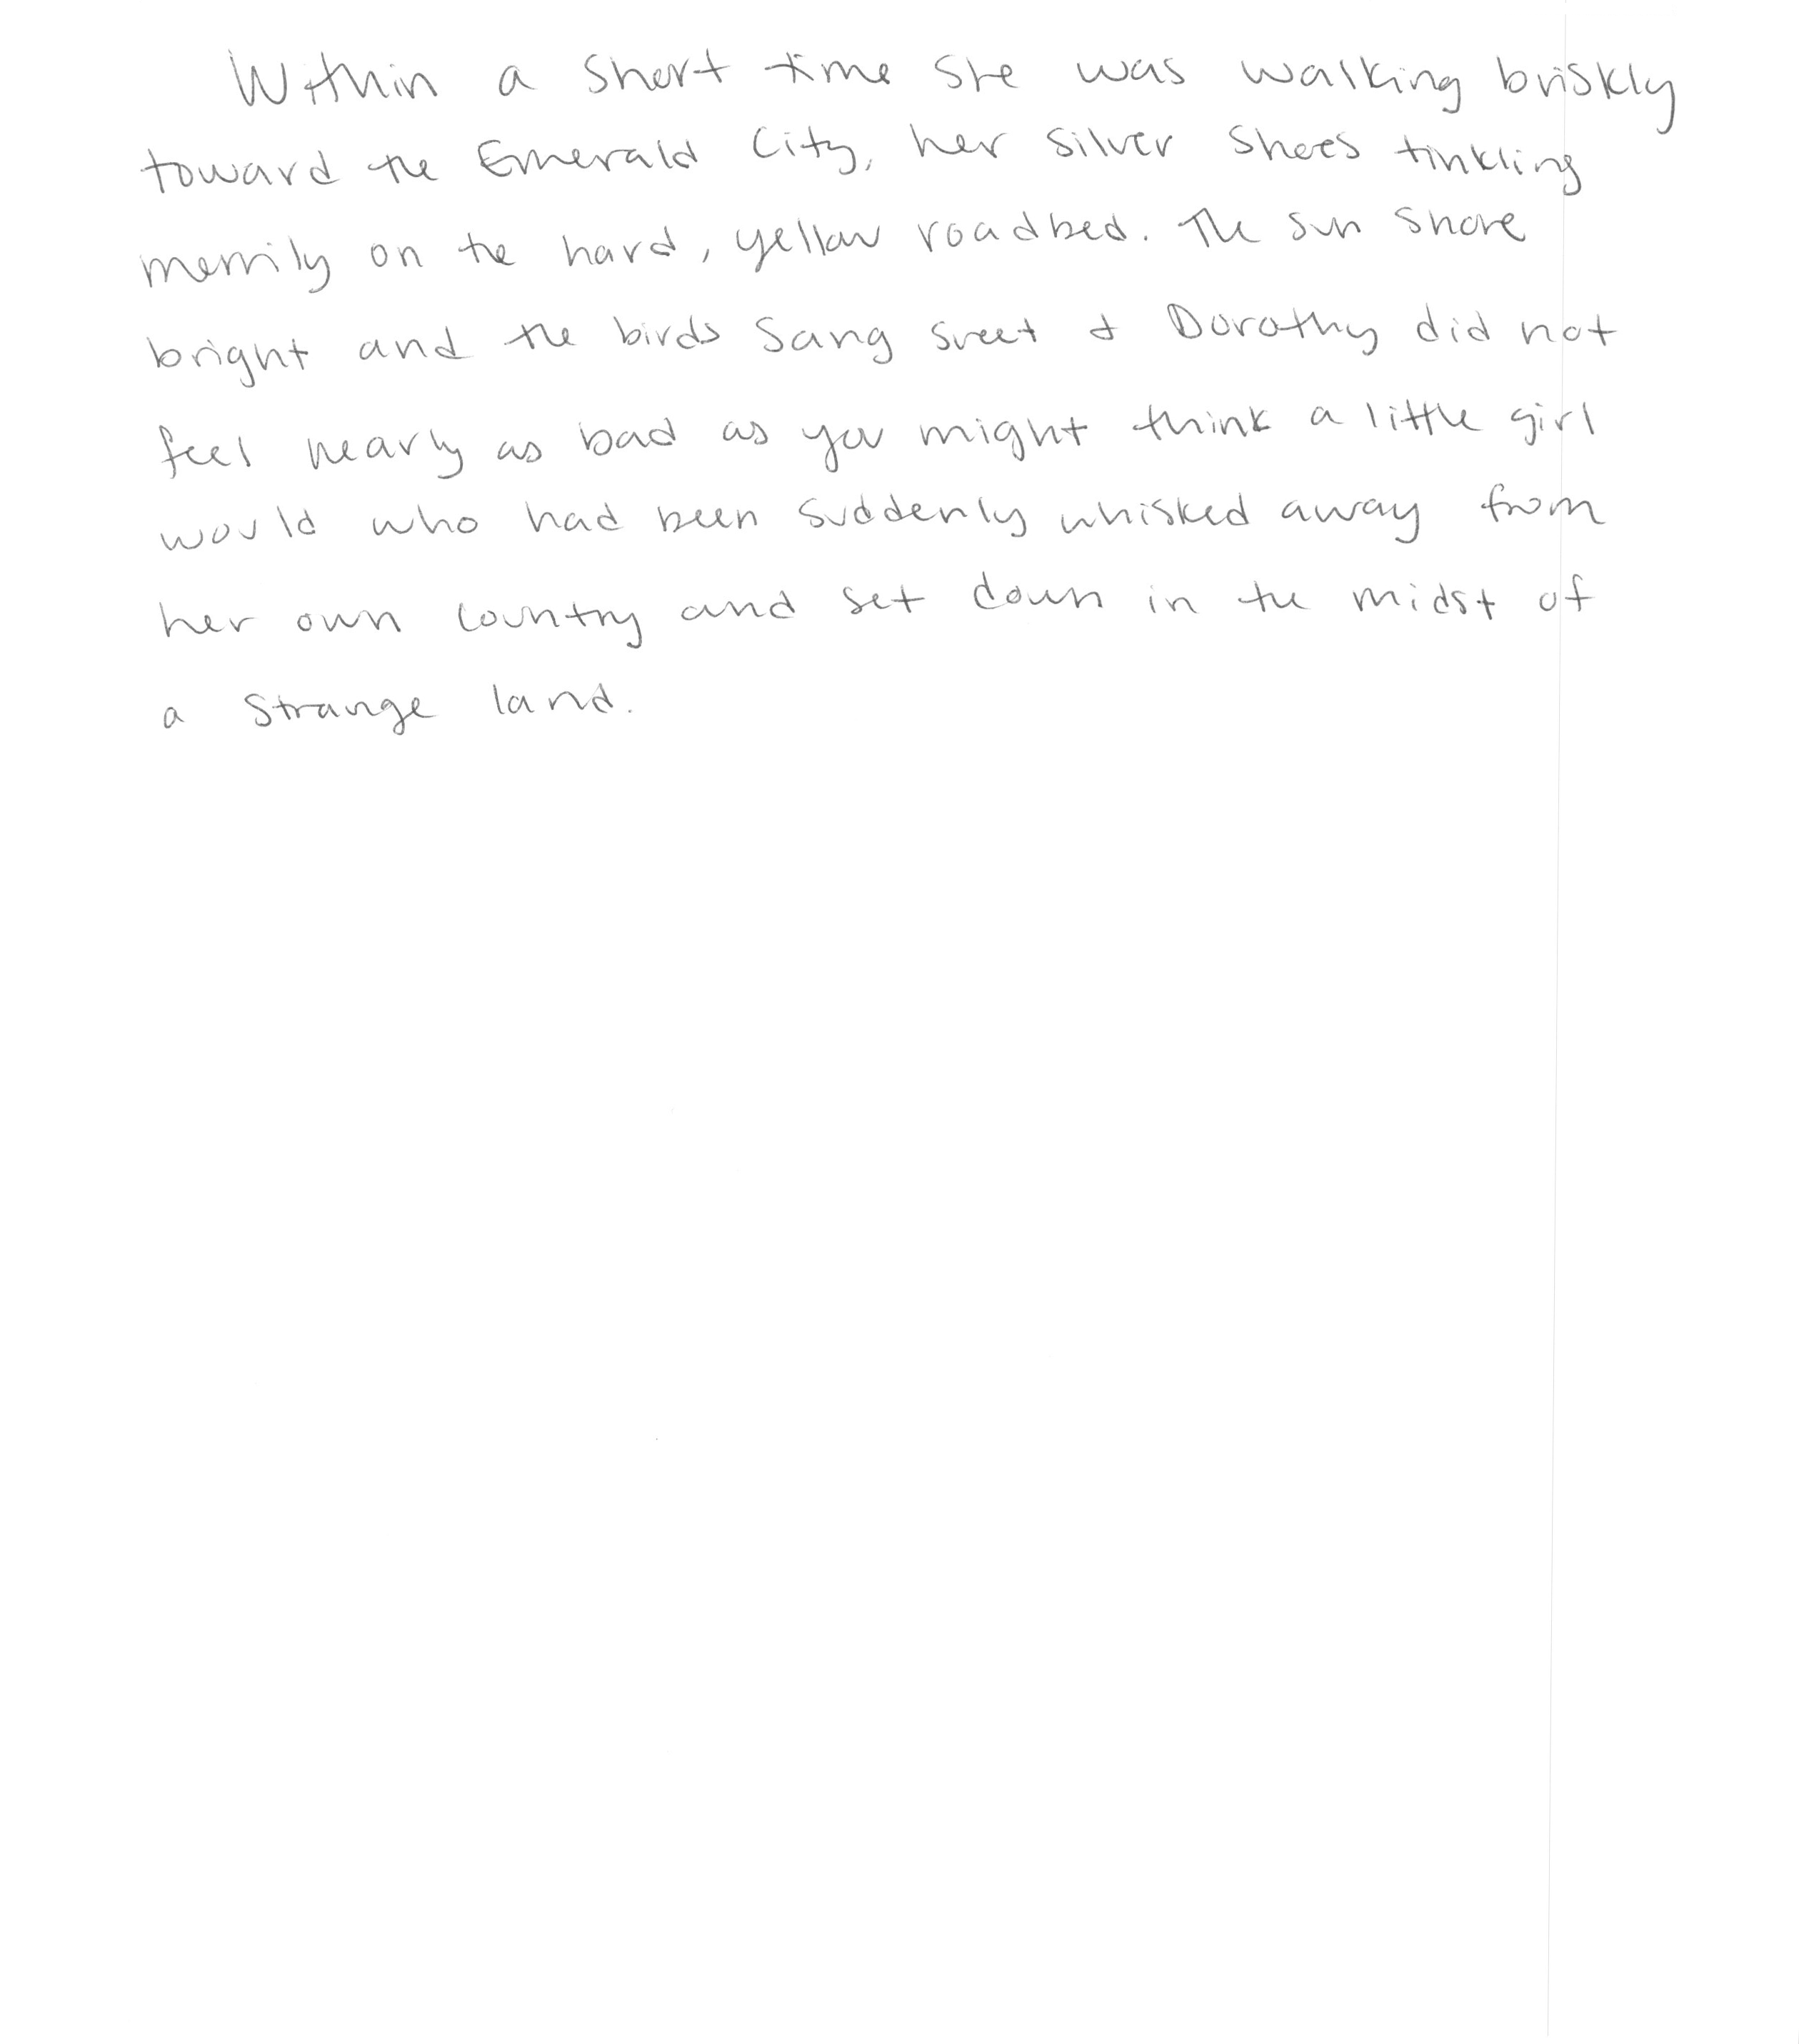 Within a short time she was walking briskly
toward the Emerald City, her silver shoes tinkling
merrily on the hard, yellow roadbed. The sun shone
bright and the birds sang sweet & Dorothy did not
feel nearly as bad as you might think a little girl
would who had been suddenly whisked away from
her own country and set down in the midst of
a strange land.